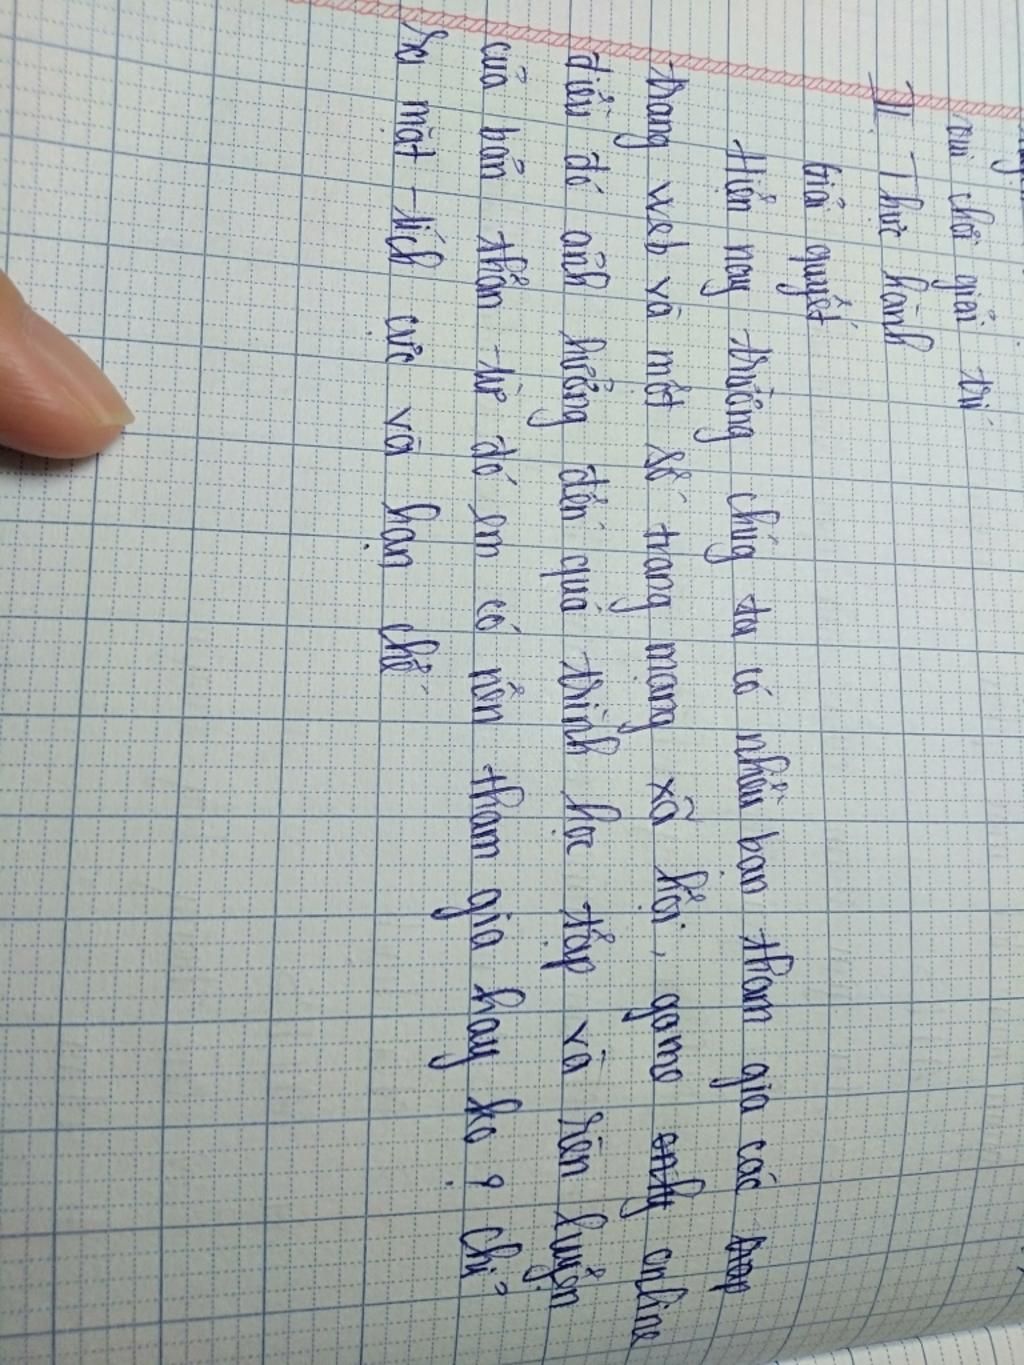 vui chơi giải trí
II. Thực hành
Giải quyết
Hiện nay trường chúg ta có nhiều bạn tham gia các
trang web và một số trang mạng xã hội, game online
điều đó ảnh hưởng đến quá trình học tập và rèn luyện
của bản thân từ đó em có nên tham gia hay ko? chỉ
ra mặt tích cực và hạn chế